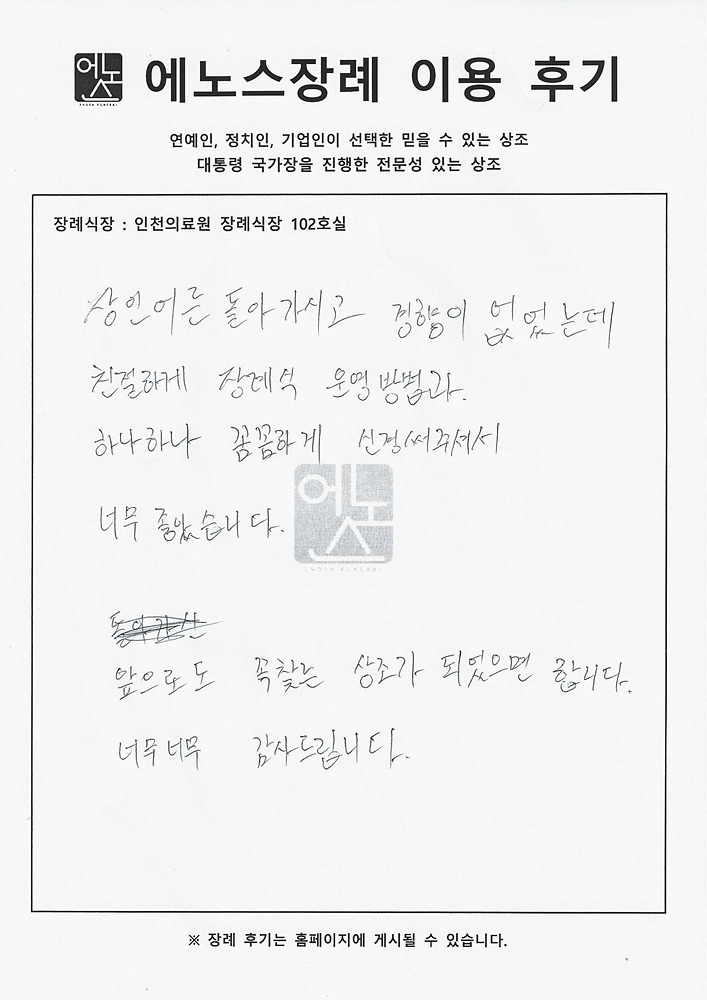 에노스
ENOSH FUNERAL
에노스장례 이용 후기
연예인, 정치인, 기업인이 선택한 믿을 수 있는 상조
대통령 국가장을 진행한 전문성 있는 상조
장례식장 : 인천의료원 장례식장 102호실
장인어른 돌아가시고 경황이 없었는데
친절하게 장례식 운영방법과.
하나하나 꼼꼼하게 신경써주셔서
너무 좋았습니다.
에노스
ENOSH FUNERAL
앞으로도 꼭찾는 상조가 되었으면 합니다.
너무너무 감사드립니다.
※ 장례 후기는 홈페이지에 게시될 수 있습니다.